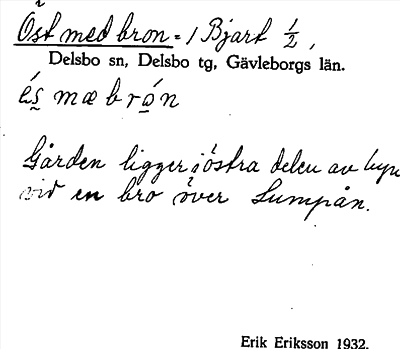 Öst med bron = 1 Bjart 1/2,
Delsbo sn, Delsbo tg, Gävleborgs län.
és mæ brón
Gården ligger i östra delen av byn
vid en bro över Lumpån.
Erik Eriksson 1932.